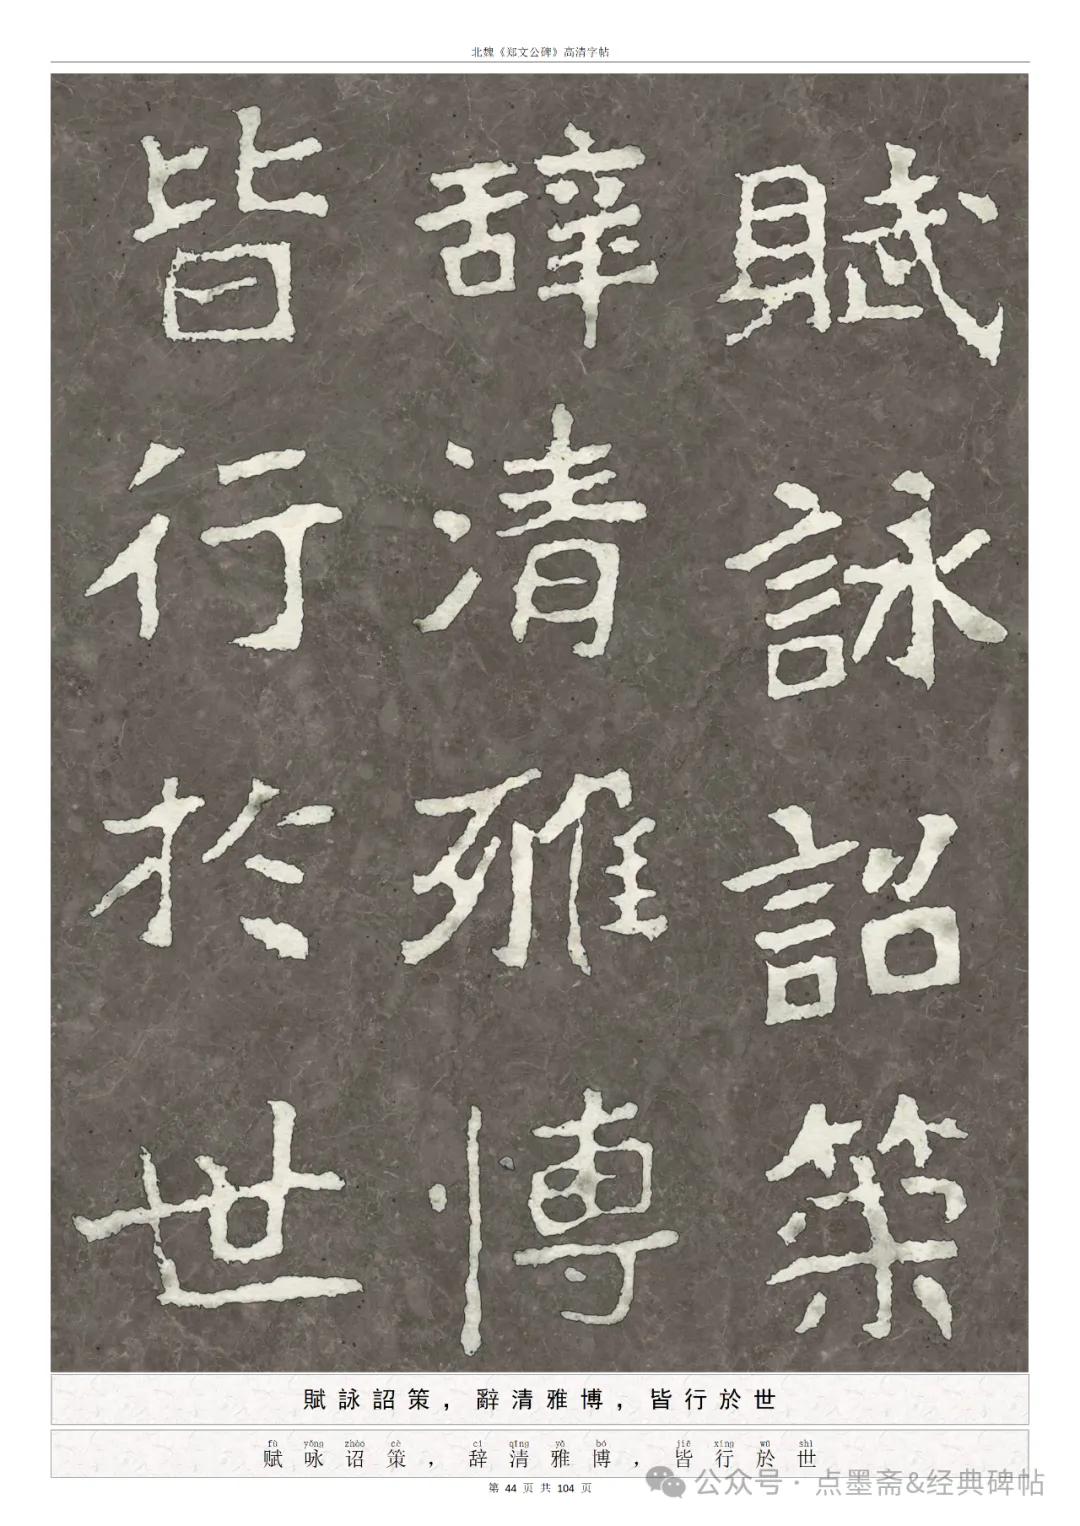 北魏《郑文公碑》高清字帖
賦詠詔策
辞清雅博
皆行於世
賦詠詔策，辭清雅博，皆行於世
fù yǒng zhào cè cí qīng yǎ bó jiē xíng wū shì
赋咏诏策，辞清雅博，皆行於世
第 44 页 共 104 页
公众号 · 点墨斋&经典碑帖